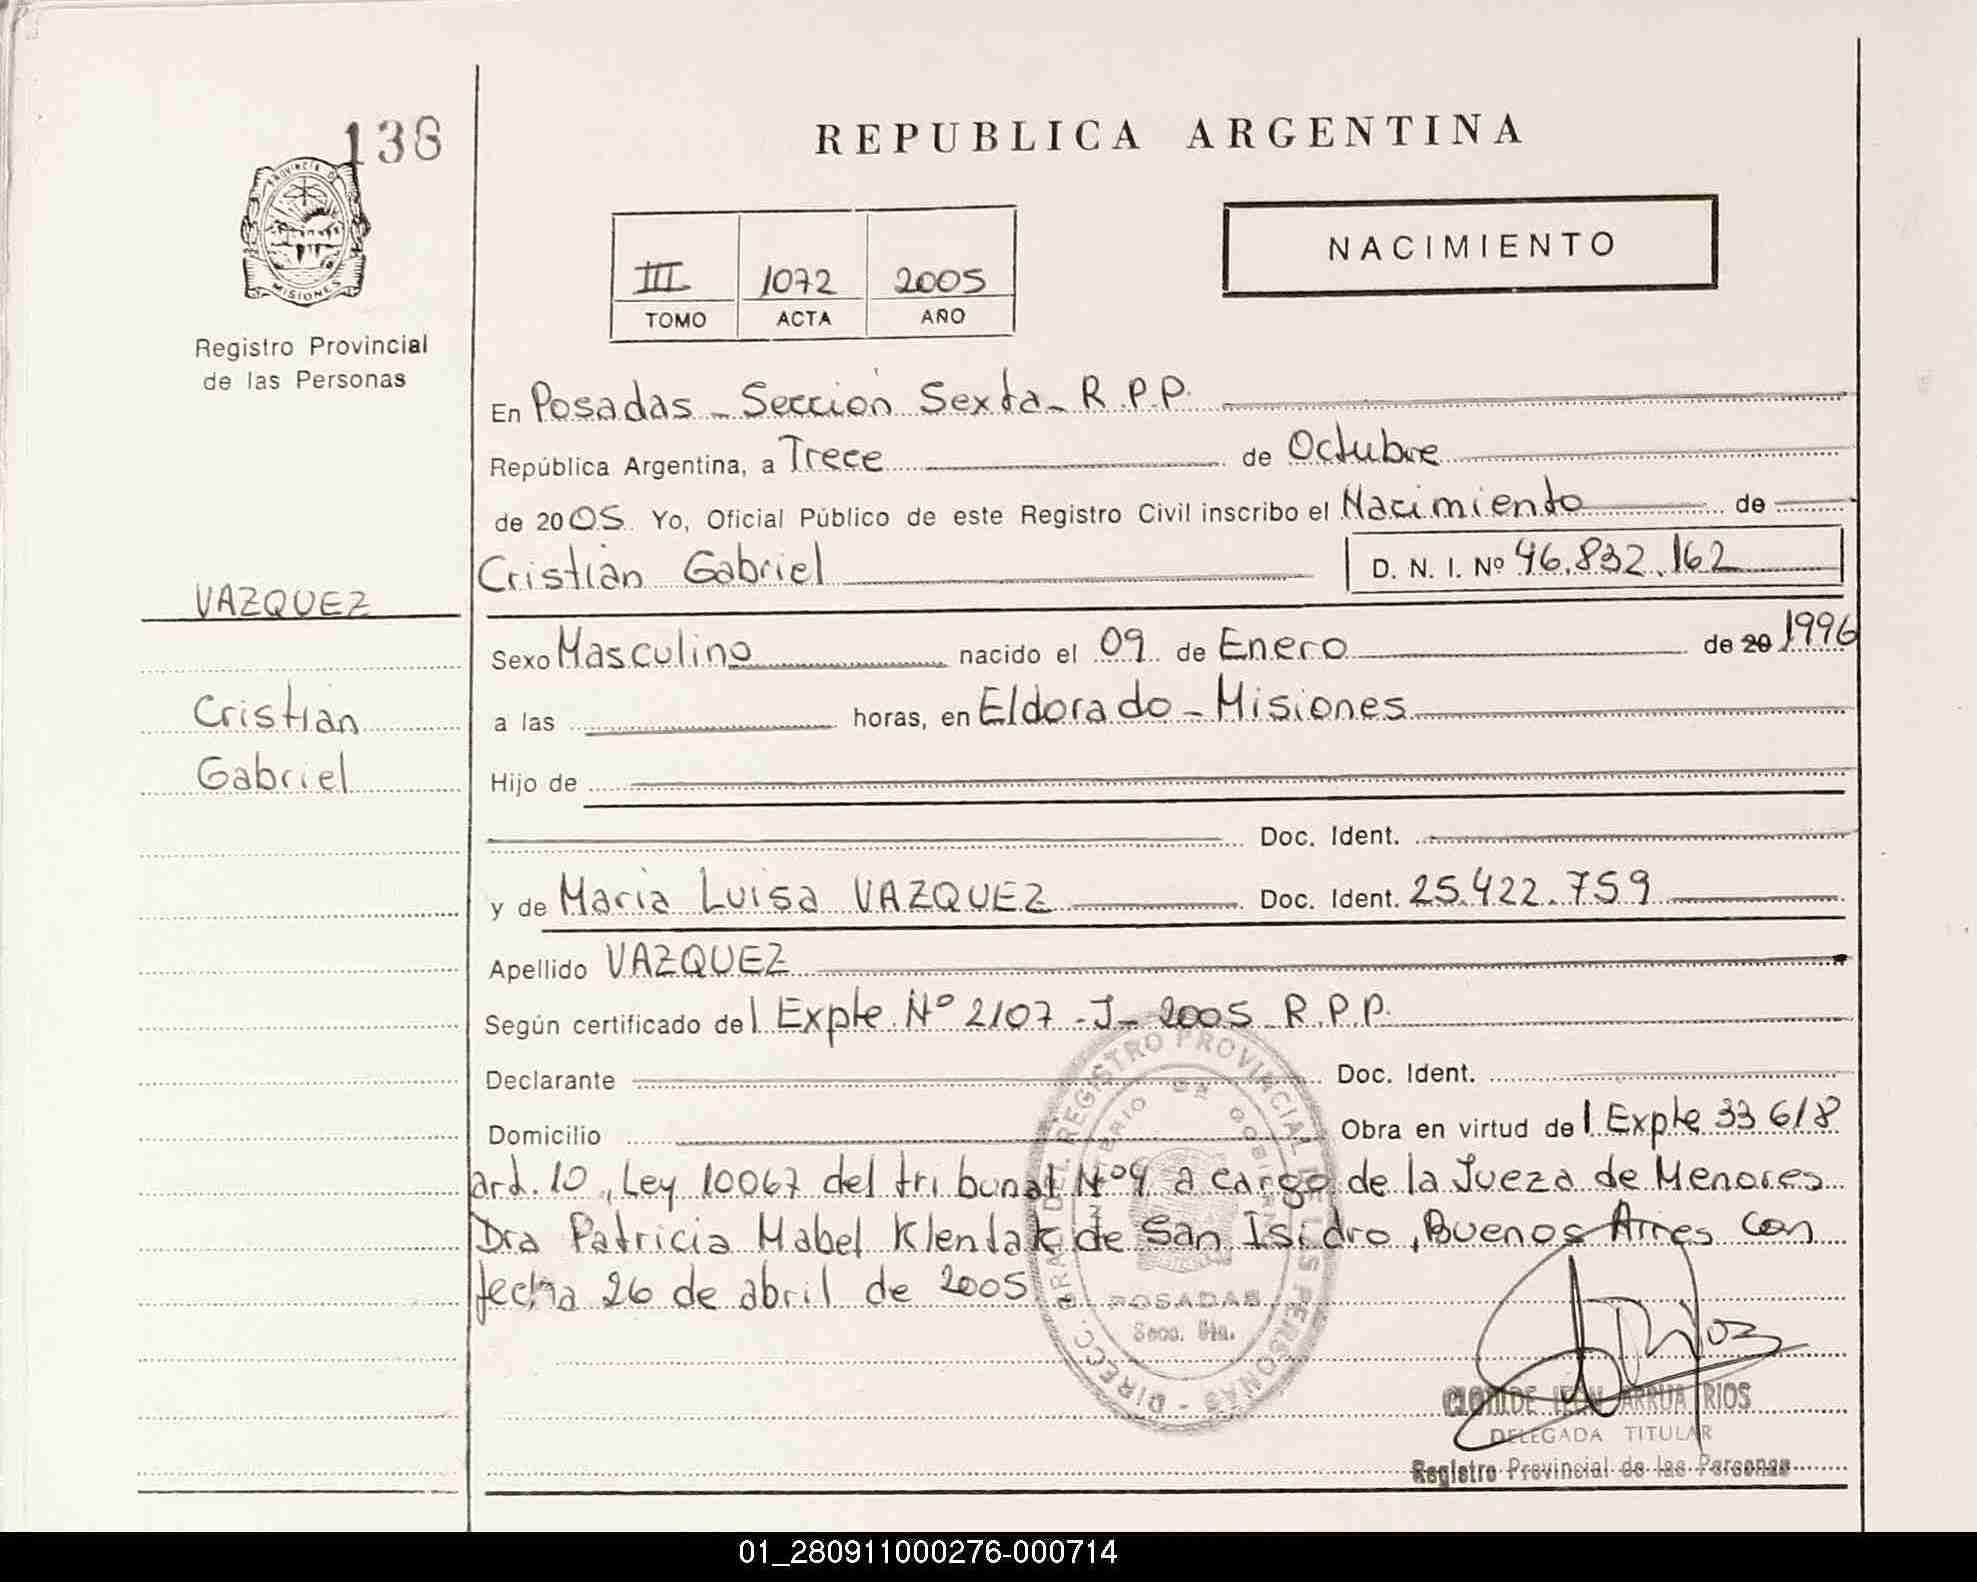 138
PROVINCIA D
MISIONES
Registro Provincial
de las Personas
REPUBLICA ARGENTINA
NACIMIENTO
III 1072 2005
TOMO ACTA AÑO
En Posadas - Sección Sexta - R.P.P.
República Argentina, a Trece de Octubre
de 2005 Yo, Oficial Público de este Registro Civil inscribo el Nacimiento de
Cristian Gabriel D. N. I. Nº 46.832.162
VAZQUEZ
Cristian
Gabriel
Sexo Masculino nacido el 09 de Enero de 20 1996
a las horas, en Eldorado - Misiones
Hijo de
Doc. Ident.
y de Maria Luisa VAZQUEZ Doc. Ident. 25.422.759
Apellido VAZQUEZ
Según certificado del Expte Nº 2107 - J - 2005 R.P.P.
Declarante Doc. Ident.
Domicilio Obra en virtud del Expte 33 618
art. 10, Ley 10067 del tribunal Nº 4 a cargo de la Jueza de Menores
Dra Patricia Mabel Klentak de San Isidro, Buenos Aires con
fecha 26 de abril de 2005
DIRECC. GRAL. DEL REGISTRO PROVINCIAL DE LAS PERSONAS
MINISTERIO DE GOBIERNO
POSADAS
Secc. 6ta.
CLOTILDE ARRUA RIOS
DELEGADA TITULAR
Registro Provincial de las Personas
01_280911000276-000714